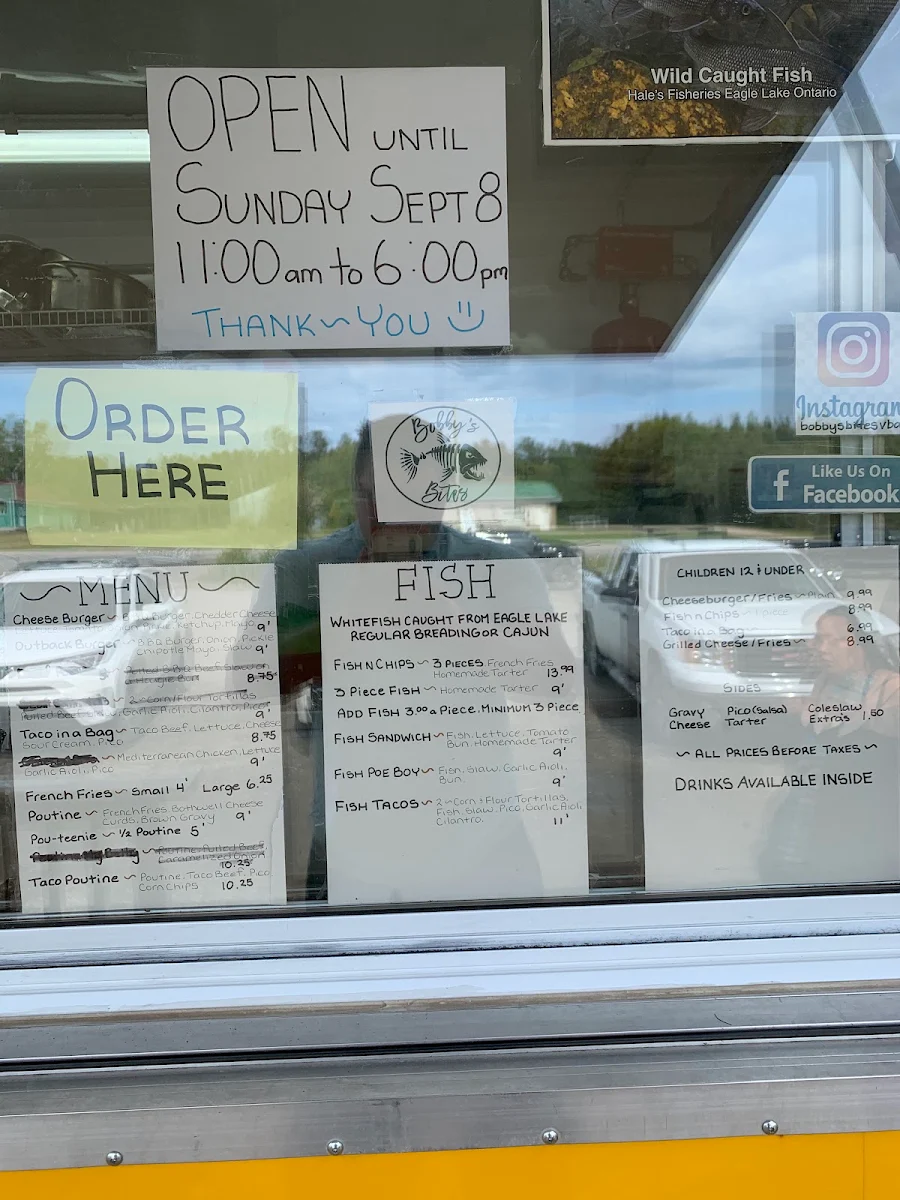 Wild Caught Fish
Hale's Fisheries Eagle Lake Ontario
OPEN UNTIL
SUNDAY SEPT 8
11:00 am to 6:00pm
THANK~YOU
ORDER
HERE
Bobby's
Bites
Instagram
bobbysbitesvba
Like Us On
Facebook
~MENU~
Cheese Burger~ Burger, Chedder Cheese
Ketchup, Mayo
9'
Outback Burger~ BBQ Burger, Onion, Pickle
Chipotle Mayo, Slaw 9'
8.75
2~Corn/Flour Tortillas
Garlic Aioli, Cilantro, Pico
9'
Taco in a Bag~ Taco Beef, Lettuce, Cheese
Sour Cream, Pico
8.75
~ Mediterranean Chicken, Lettuce
Garlic Aioli, Pico
9'
French Fries~ Small 4' Large 6.25
Poutine~ French Fries, Bothwell Cheese
Curds, Brown Gravy 9'
Pou-teenie~ 1/2 Poutine 5'
Poutine, Pulled Beef,
Caramelized Onion
10.25
Taco Poutine~ Poutine, Taco Beef, Pico
Corn Chips 10.25
FISH
WHITEFISH CAUGHT FROM EAGLE LAKE
REGULAR BREADING OR CAJUN
FISH N CHIPS~ 3 PIECES French Fries
Homemade Tarter 13.99
3 PIECE FISH~ Homemade Tarter 9'
ADD FISH 3.00 a PIECE, MINIMUM 3 PIECE
FISH SANDWICH~ Fish, Lettuce, Tomato
Bun, Homemade Tarter
9'
FISH POE BOY~ Fish, Slaw, Garlic Aioli,
Bun.
9'
FISH TACOS~ 2~Corn & Flour Tortillas,
Fish, Slaw, Pico, Garlic Aioli
Cilantro.
11'
CHILDREN 12 & UNDER
Cheeseburger/Fries~ Plain 9.99
Fish n Chips~ 1 Piece 8.99
Taco in a Bag~ 6.99
Grilled Cheese/Fries~ 8.99
SIDES
Gravy Pico(salsa) Coleslaw
Cheese Tarter Extra's 1.50
~ALL PRICES BEFORE TAXES~
DRINKS AVAILABLE INSIDE